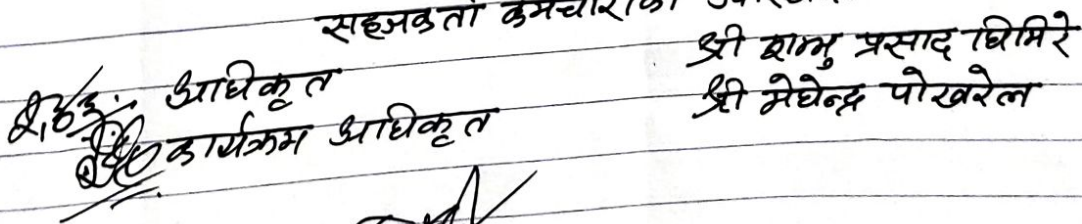 सहजकर्ता कर्मचारीको
अधिकृत श्री शम्भु प्रसाद घिमिरे
कार्यक्रम अधिकृत श्री मेघेन्द्र पोखरेल